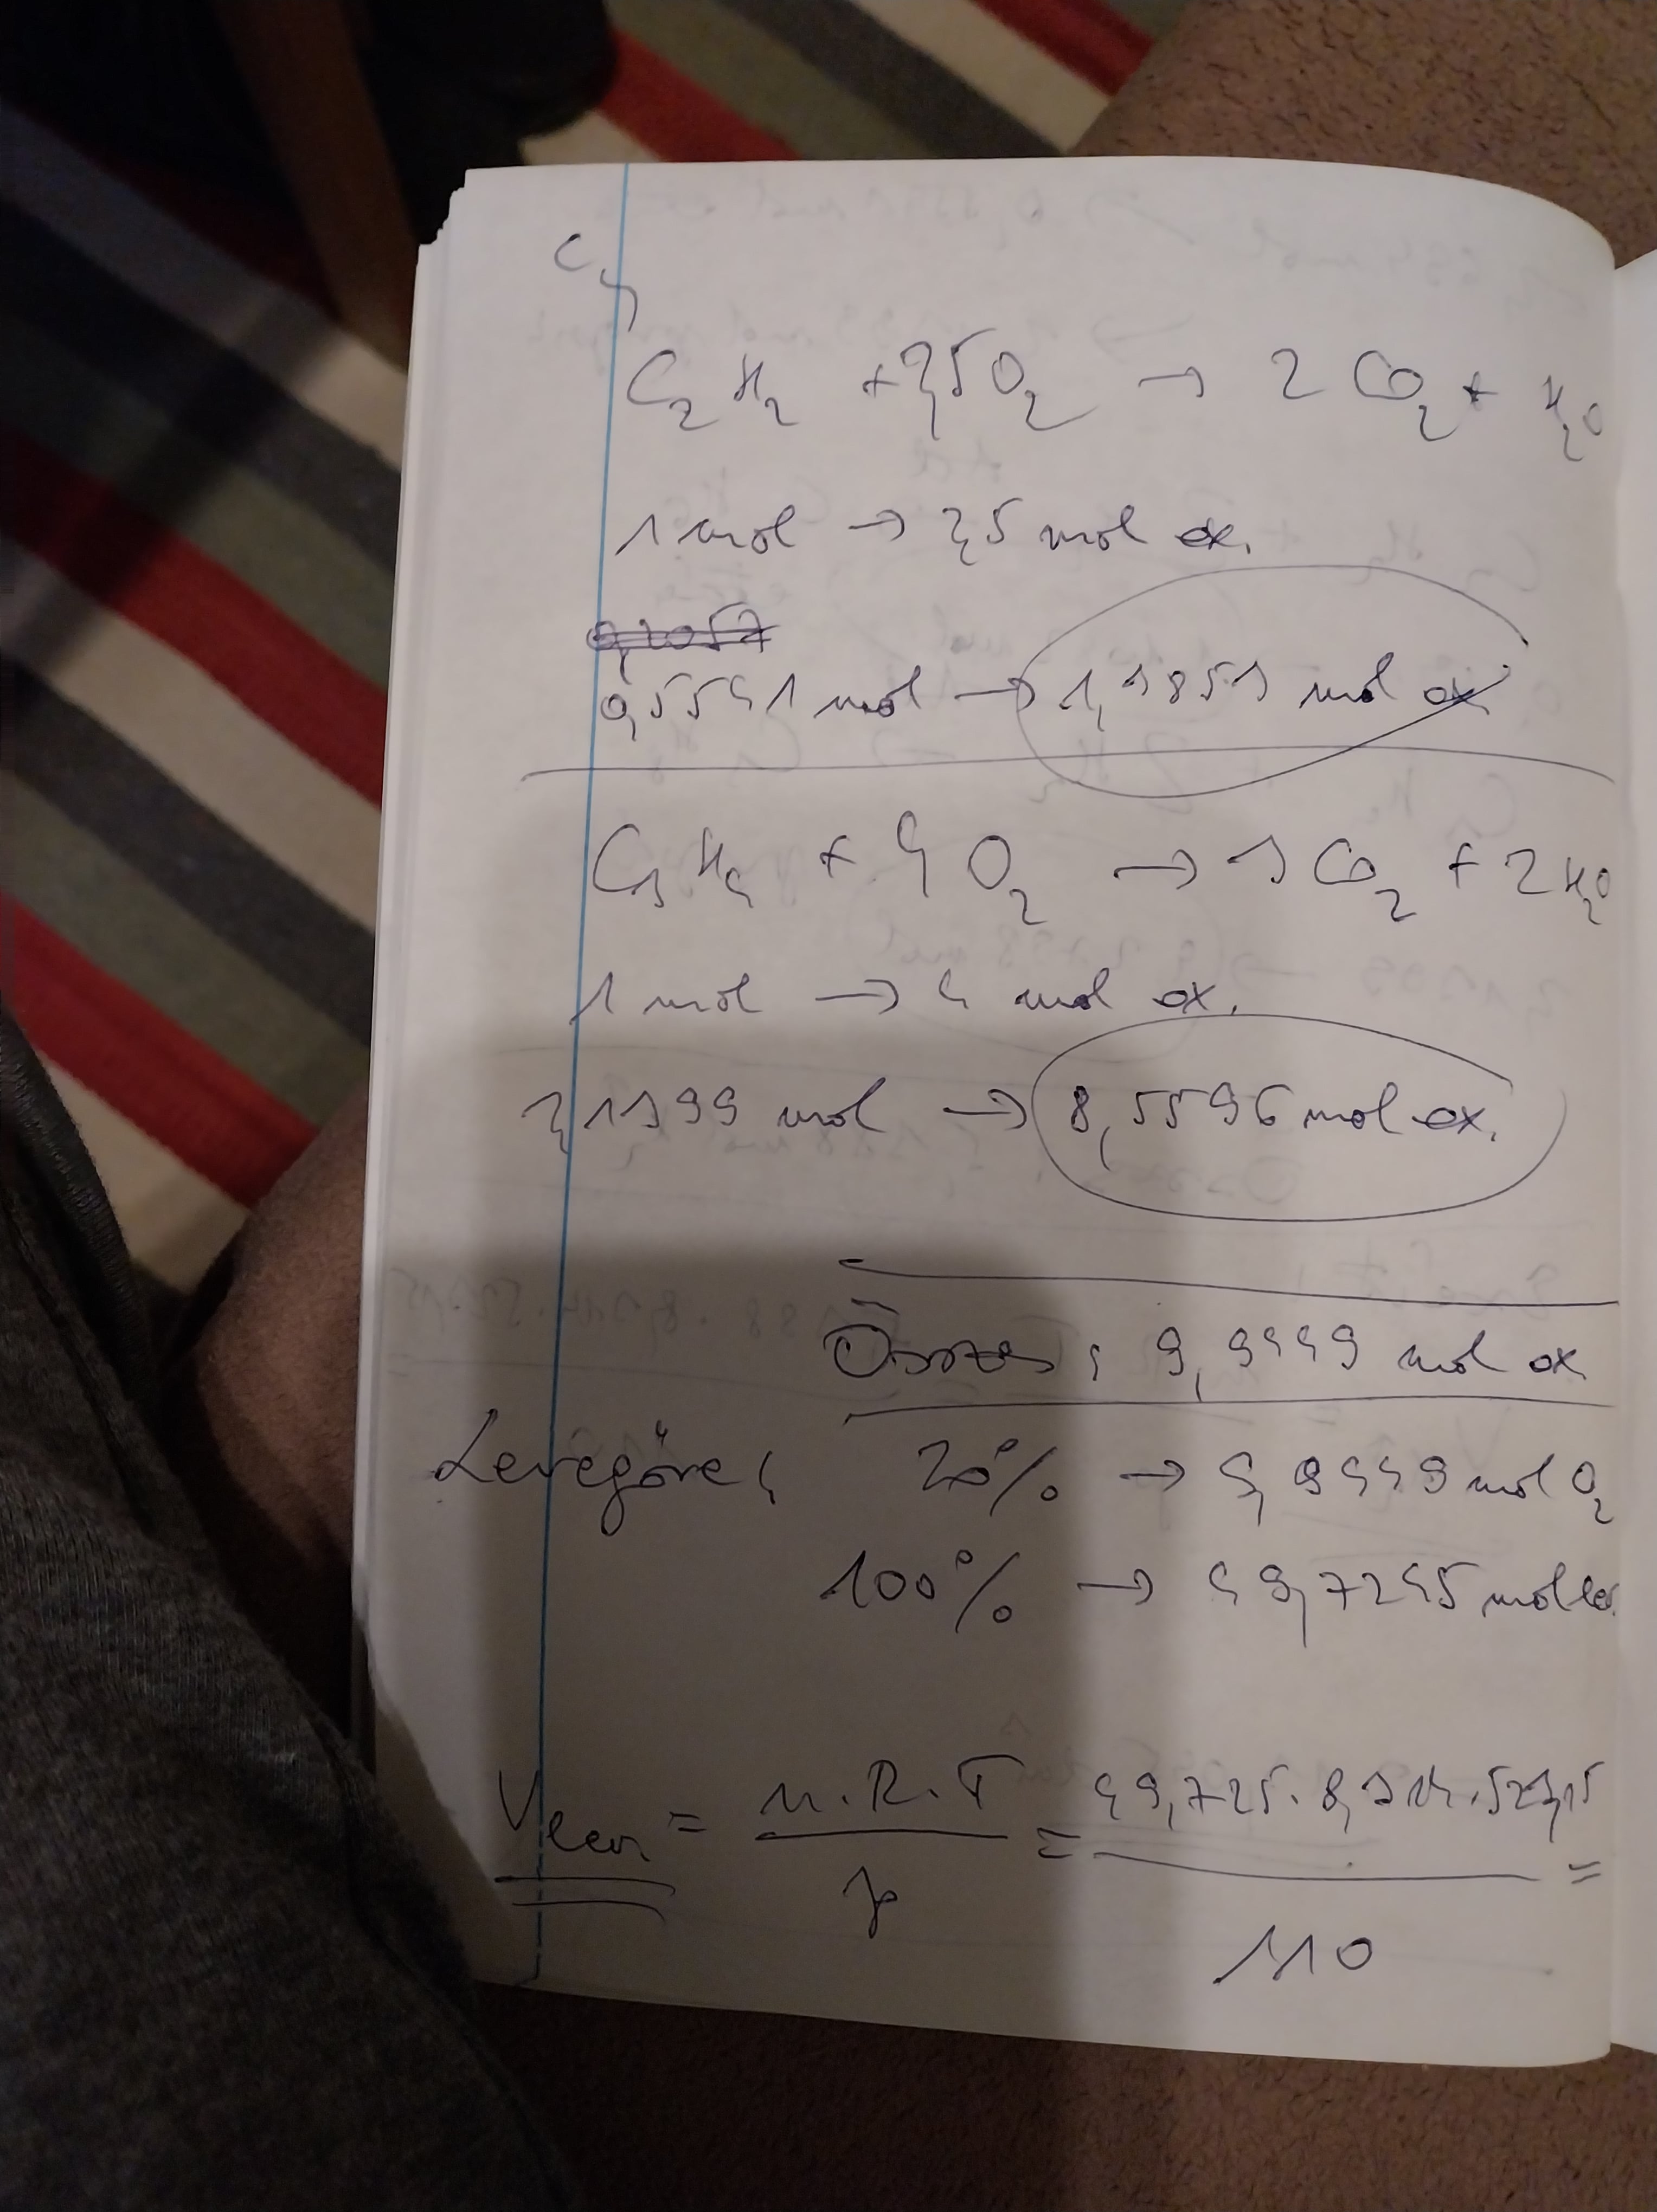 C,
C₂H₂ + 2,5O₂ → 2 CO₂ + H₂O
1 mol → 2,5 mol ox.
0,5541 mol → 1,3853 mol ox
C₃H₄ + 4 O₂ → 3 CO₂ + 2H₂O
1 mol → 4 mol ox.
2,1399 mol → 8,5596 mol ox.
Összes: 9,9449 mol ox
Levegőre: 20% → 9,9449 mol O₂
100% → 49,7245 mol lev.
V lev = n.R.T / p = 49,725. 8,314. 523,15 / 110 =